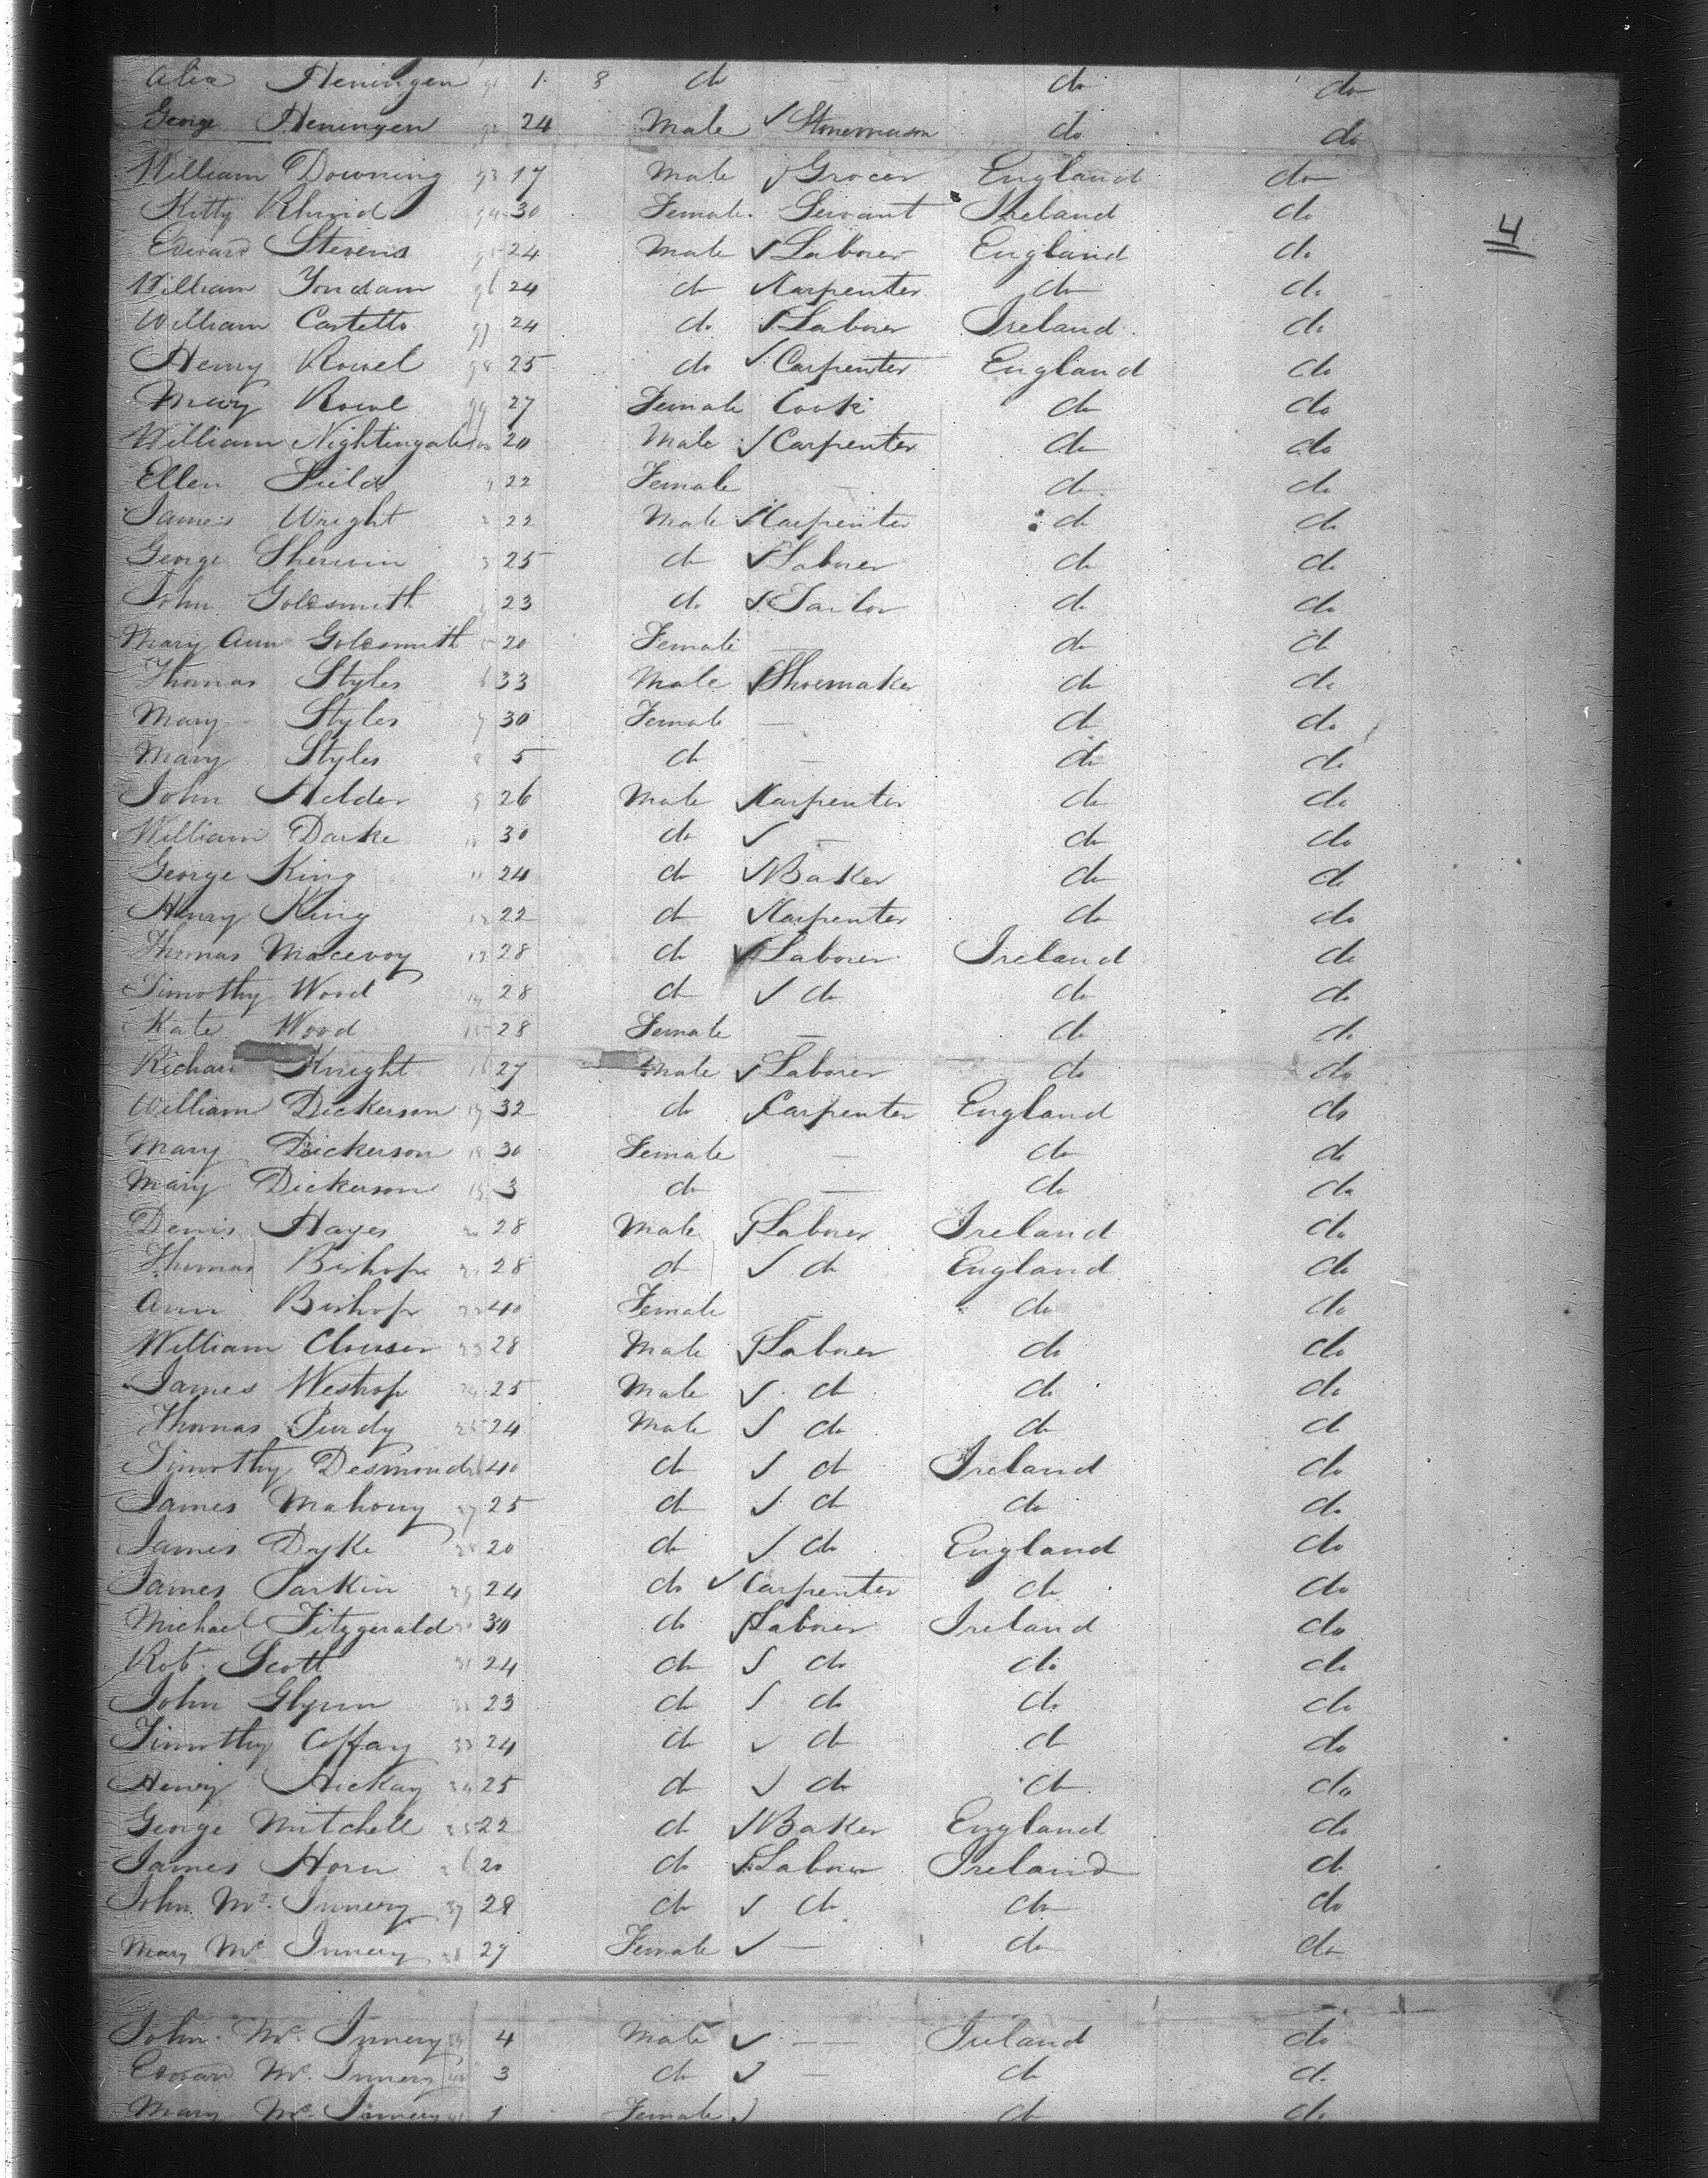 Heningen 91 1 8 do — do do
George Heningen 92 24 Male ✓ Stonemason do do
William Downing 93 17 Male ✓ Grocer England do
Kitty 94 30 Female Servant Ireland do
4
Edward Stevens 95 24 Male ✓ Laborer England do
William 96 24 do ✓ Carpenter do do
William Castello 97 24 do ✓ Laborer Ireland do
Henry Rowel 98 25 do ✓ Carpenter England do
Mary Rowel 99 27 Female Cook do do
William Nightingale 20 Male ✓ Carpenter do do
Ellen Field 1 22 Female — do do
James Wright 2 22 Male ✓ Carpenter do do
George Sherwin 3 25 do ✓ Laborer do do
John Goldsmith 4 23 do ✓ Tailor do do
Mary Ann Goldsmith 5 20 Female — do do
Thomas Styles 6 33 Male ✓ Shoemaker do do
Mary Styles 7 30 Female — do do
Mary Styles 8 5 do — do do
John 9 26 Male ✓ Carpenter do do
William Darke 10 30 do ✓ — do do
George King 11 24 do ✓ Baker do do
Henry King 12 22 do ✓ Carpenter do do
Thomas Macevoy 13 28 do ✓ Laborer Ireland do
Timothy Wood 14 28 do ✓ do do do
Kate Wood 15 28 Female — do do
Richard Knight 16 27 Male ✓ Laborer do do
William Dickerson 17 32 do ✓ Carpenter England do
Mary Dickerson 18 30 Female — do do
Mary Dickerson 19 3 do — do do
Denis Hayes 20 28 Male ✓ Laborer Ireland do
Thomas Bishop 21 28 do ✓ do England do
Ann Bishop 22 40 Female do do
William Clouser 23 28 Male ✓ Laborer do do
James Westrop 24 25 Male ✓ do do do
Thomas Purdy 25 24 Male ✓ do do do
Timothy Desmond 26 40 do ✓ do Ireland do
James Mahony 27 25 do ✓ do do do
James Dyke 28 20 do ✓ do England do
James Parkin 29 24 do ✓ Carpenter do do
Michael Fitzgerald 30 30 do ✓ Laborer Ireland do
Rob. Scott 31 24 do ✓ do do do
John Glynn 32 23 do ✓ do do do
Timothy Coffay 33 24 do ✓ do do do
Henry Hickay 34 25 do ✓ do do do
George Mitchell 35 22 do ✓ Baker England do
James Horn 36 20 do ✓ Laborer Ireland do
John Mc. Innery 37 28 do ✓ do do do
Mary Mc Innery 38 27 Female ✓ — do do
John Mc. Innery 39 4 Male ✓ — Ireland do
Edward Mc. Innery 40 3 do ✓ — do do
Mary Mc. Innery 41 1 Female ✓ do do